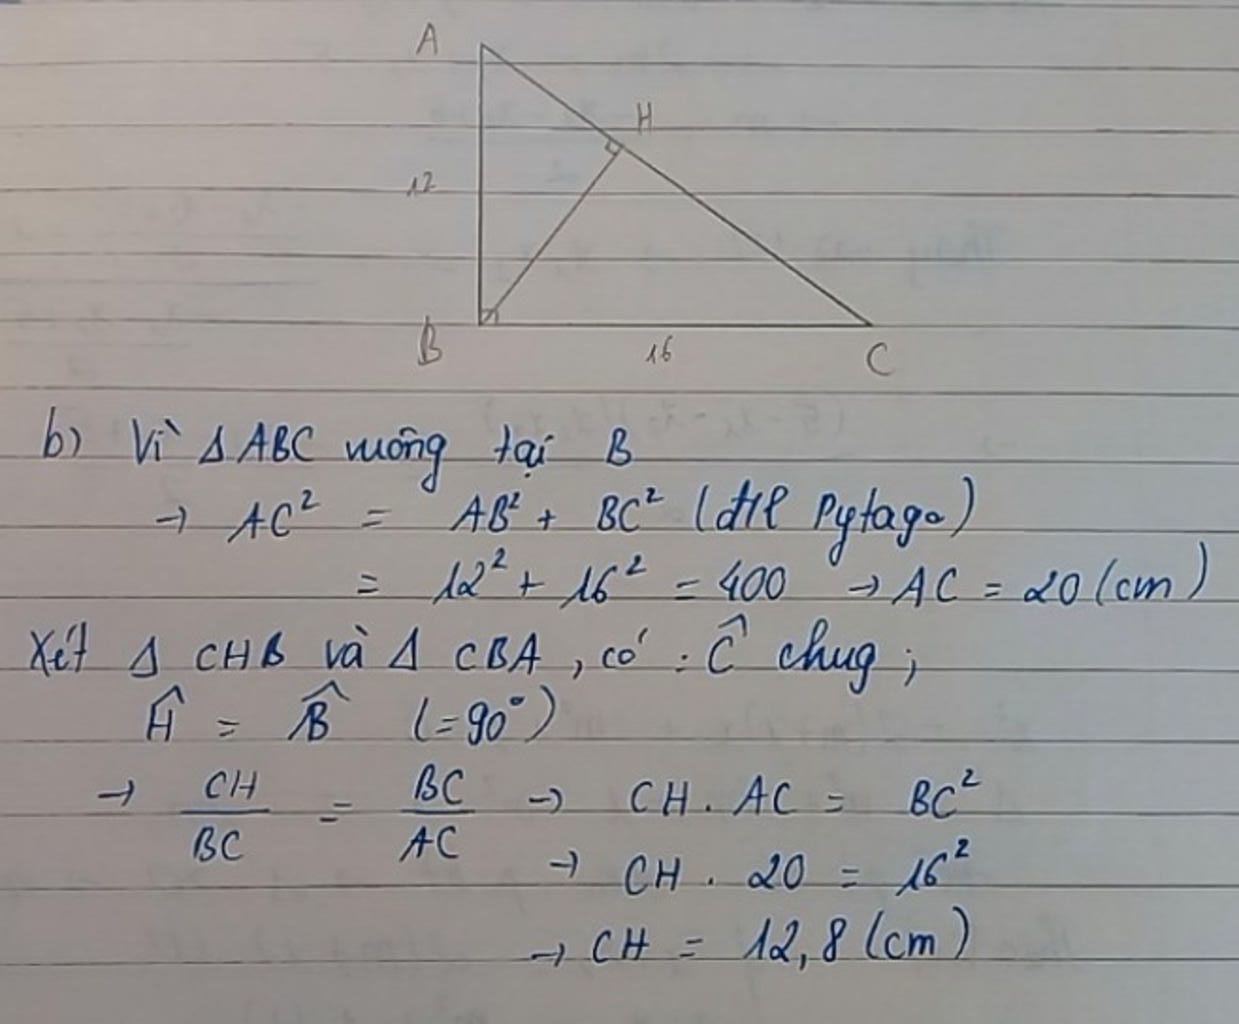 A
H
12
B
16
C
b) Vì Δ ABC vuông tại B
→ AC² = AB² + BC² (đlí Pytago)
= 12² + 16² = 400 → AC = 20 (cm)
Xét Δ CHB và Δ CBA, có : Ĉ chug ;
Ĥ = B̂ (=90°)
→ CH/BC = BC/AC → CH . AC = BC²
→ CH . 20 = 16²
→ CH = 12,8 (cm)